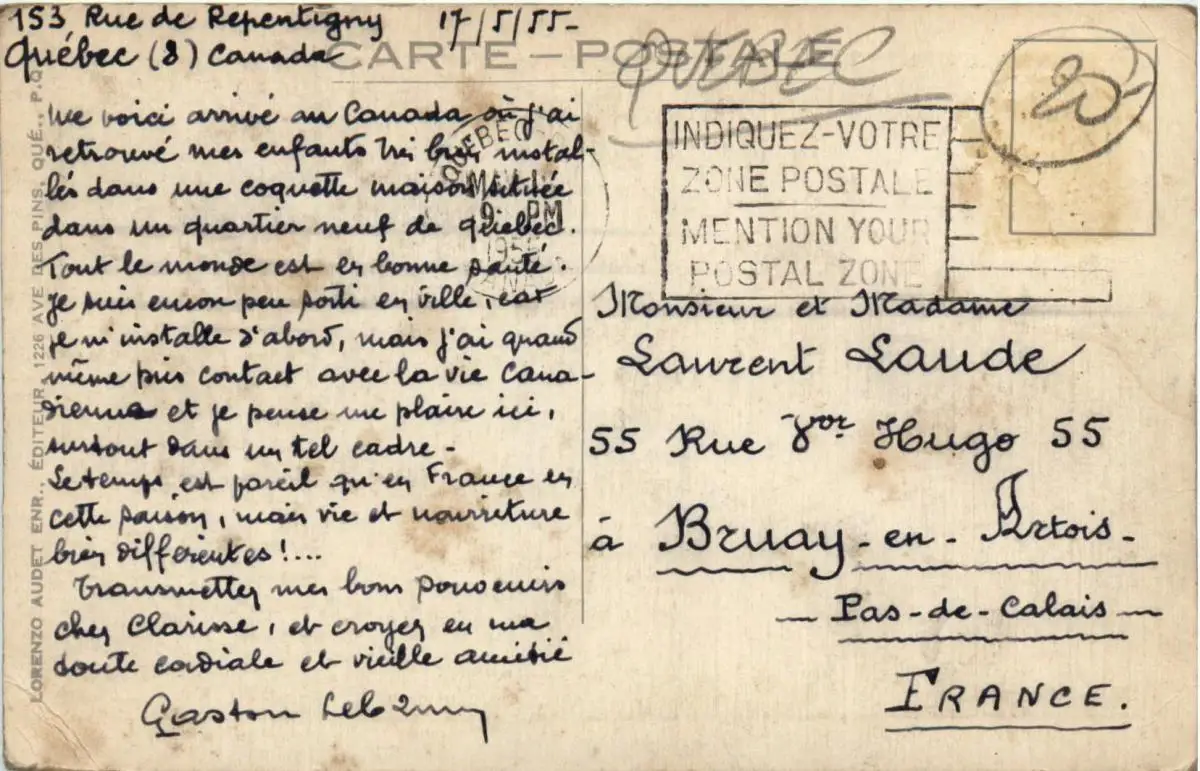 153 Rue de Repentigny 17/5/55-
Québec (8) Canada
CARTE - POSTALE
QUEBEC
20
Me voici arrivé au Canada où j'ai
retrouvé mes enfants très bien instal-
lés dans une coquette maison située
dans un quartier neuf de Québec.
Tout le monde est en bonne santé.
Je suis encore peu sorti en ville, car
je m'installe d'abord, mais j'ai quand
même pris contact avec la vie cana-
dienne et je pense me plaire ici,
surtout dans un tel cadre -
Le temps est pareil qu'en France en
cette saison, mais vie et nourriture
bien différentes!...
Transmettez mes bons souvenirs
chez Clarisse, et croyez en ma
toute cordiale et vieille amitié
Gaston
QUEBEC
MAY
9 PM
195
INDIQUEZ-VOTRE
ZONE POSTALE
MENTION YOUR
POSTAL ZONE
Monsieur et Madame
Laurent Laude
55 Rue Vor Hugo 55
à Bruay-en-Artois-
- Pas-de-Calais -
FRANCE.
LORENZO AUDET ENR., ÉDITEUR, 1226 AVE DES PINS, QUÉ., P.Q.